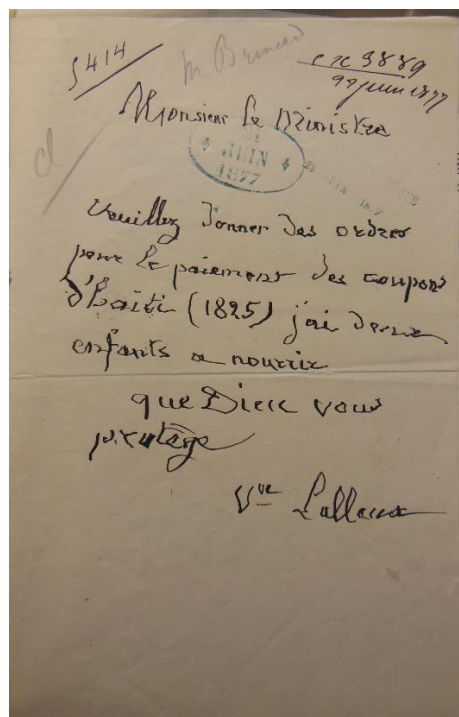 5414
M. Brincard
9889
22 juin 1877
Monsieur le Ministre
21
JUIN
1877
Veuillez donner des ordres
pour le paiement des coupons
d'Haïti (1825) j'ai deux
enfants a nourrir
que Dieu vous
protège
Vve Lalleux